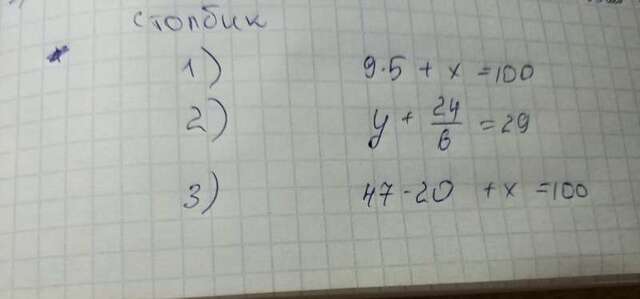 столбик
1) 9·5 + x = 100
2) y + 24/6 = 29
3) 47 - 20 + x = 100